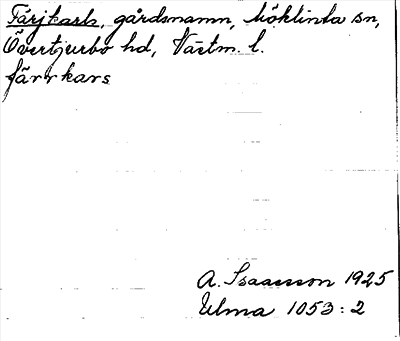 Färjkarls, gårdsnamn, Möklinta sn,
Övertjurbo hd, Västm. l.
färrkars
A. Isaacsson 1925
Ulma 1053:2